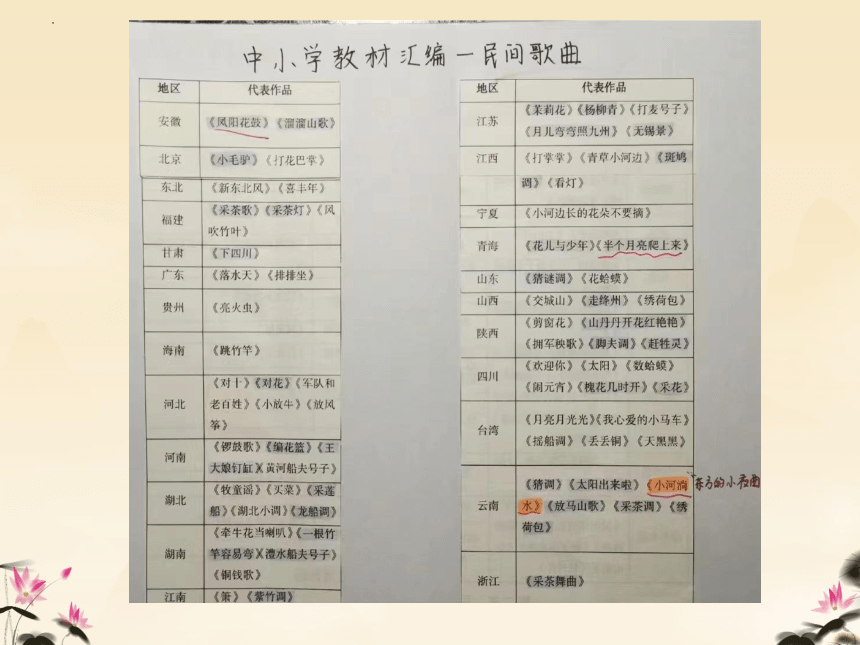 中小学教材汇编一民间歌曲
地区 代表作品
安徽 《凤阳花鼓》《溜溜山歌》
北京 《小毛驴》《打花巴掌》
东北 《新东北风》《喜丰年》
福建 《采茶歌》《采茶灯》《风
吹竹叶》
甘肃 《下四川》
广东 《落水天》《排排坐》
贵州 《亮火虫》
海南 《跳竹竿》
河北 《对十》《对花》《军队和
老百姓》《小放牛》《放风
筝》
河南 《锣鼓歌》《编花篮》《王
大娘钉缸》《黄河船夫号子》
湖北 《牧童谣》《买菜》《采莲
船》《湖北小调》《龙船调》
湖南 《牵牛花当喇叭》《一根竹
竿容易弯》《澧水船夫号子》
《铜钱歌》
江南 《箫》《紫竹调》
地区 代表作品
江苏 《茉莉花》《杨柳青》《打麦号子》
《月儿弯弯照九州》《无锡景》
江西 《打掌掌》《青草小河边》《斑鸠
调》《看灯》
宁夏 《小河边长的花朵不要摘》
青海 《花儿与少年》《半个月亮爬上来》
山东 《猜谜调》《花蛤蟆》
山西 《交城山》《走绛州》《绣荷包》
陕西 《剪窗花》《山丹丹开花红艳艳》
《拥军秧歌》《脚夫调》《赶牲灵》
四川 《欢迎你》《太阳》《数蛤蟆》
《闹元宵》《槐花几时开》《采花》
台湾 《月亮月光光》《我心爱的小马车》
《摇船调》《丢丢铜》《天黑黑》
云南 《猜调》《太阳出来啦》《小河淌 东方的小夜曲
水》《放马山歌》《采茶调》《绣
荷包》
浙江 《采茶舞曲》